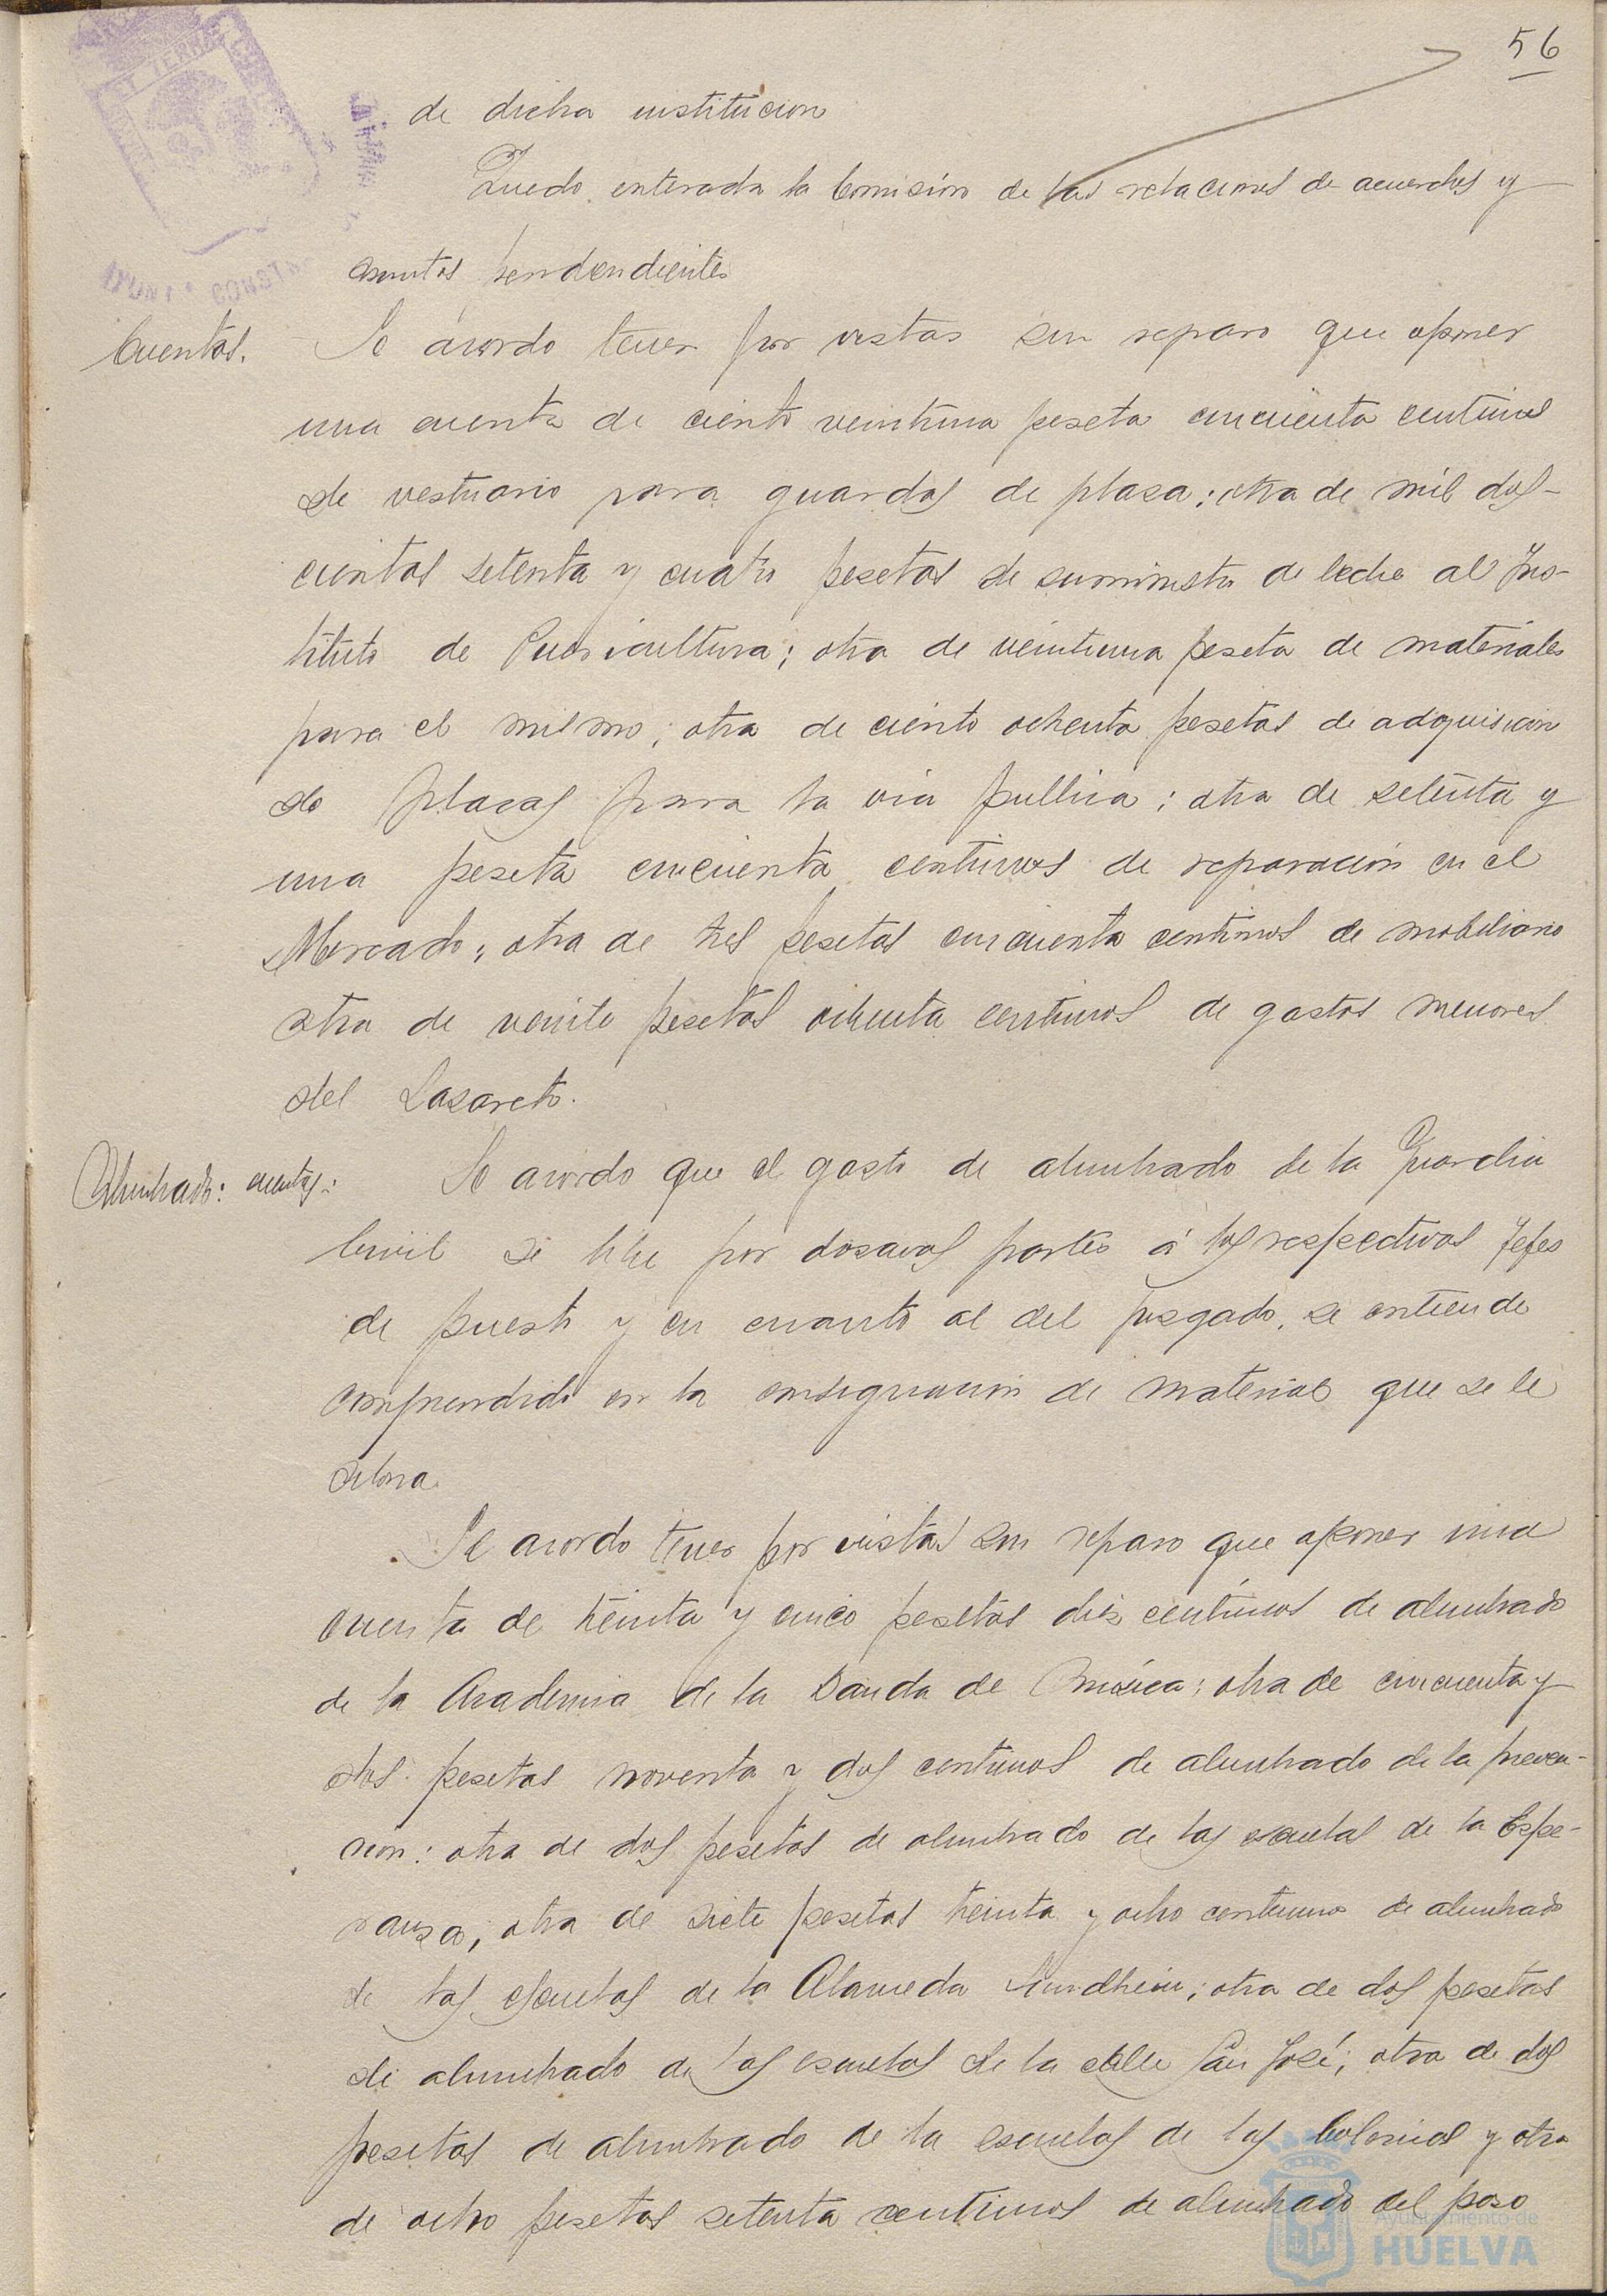 56
de dicha institucion
Quedo enterada la Comisión de las relaciones de acuerdos y
asuntos pendendientes
Cuentas. Se acordo tener por vistas sin reparo que oponer
una cuenta de ciento veintiuna peseta cincuenta centimos
de vestuario para guardas de plasa; otra de mil dos-
cientas setenta y cuatro pesetas de suministro de leche al Ins-
tituto de Puericultura; otra de veintiuna peseta de materiales
para el mismo; otra de ciento ochenta pesetas de adquisicion
de placas para la via publica; otra de setenta y
una peseta cincuenta centimos de reparación en el
Mercado; otra de tres pesetas cincuenta centimos de mobiliario
otra de veinte pesetas ochenta centimos de gastos menores
del Lazareto.
Alumbrado: cuentas: Se acordo que el gasto de alumbrado de la Guardia
Civil se libre por dozavas partes á los respectivos Jefes
de puesto y en cuanto al del Juzgado, se entiende
comprendido en la consignacion de material que se le
abona.
Se acordo tener por vistas sin reparo que oponer una
cuenta de treinta y cinco pesetas diez centimos de alumbrado
de la Academia de la Banda de Música; otra de cincuenta y
dos pesetas noventa y dos centimos de alumbrado de la preven-
cion: otra de dos pesetas de alumbrado de las escuelas de la Espe-
ranza; otra de siete pesetas treinta y ocho centimos de alumbrado
de las escuelas de la Alameda Sundheim; otra de dos pesetas
de alumbrado de las escuelas de la calle San José; otra de dos
pesetas de alumbrado de la escuelas de las Colonias y otra
de ocho pesetas setenta centimos de alumbrado del poso
Ayuntamiento de
HUELVA